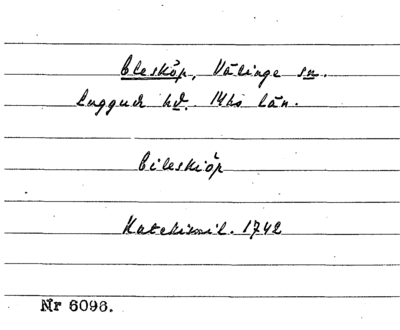 Bleskôp, Välinge sn.
Luggude hd. Mhs län.
Bileskiôp
Katekismil. 1742
Nr 6096.